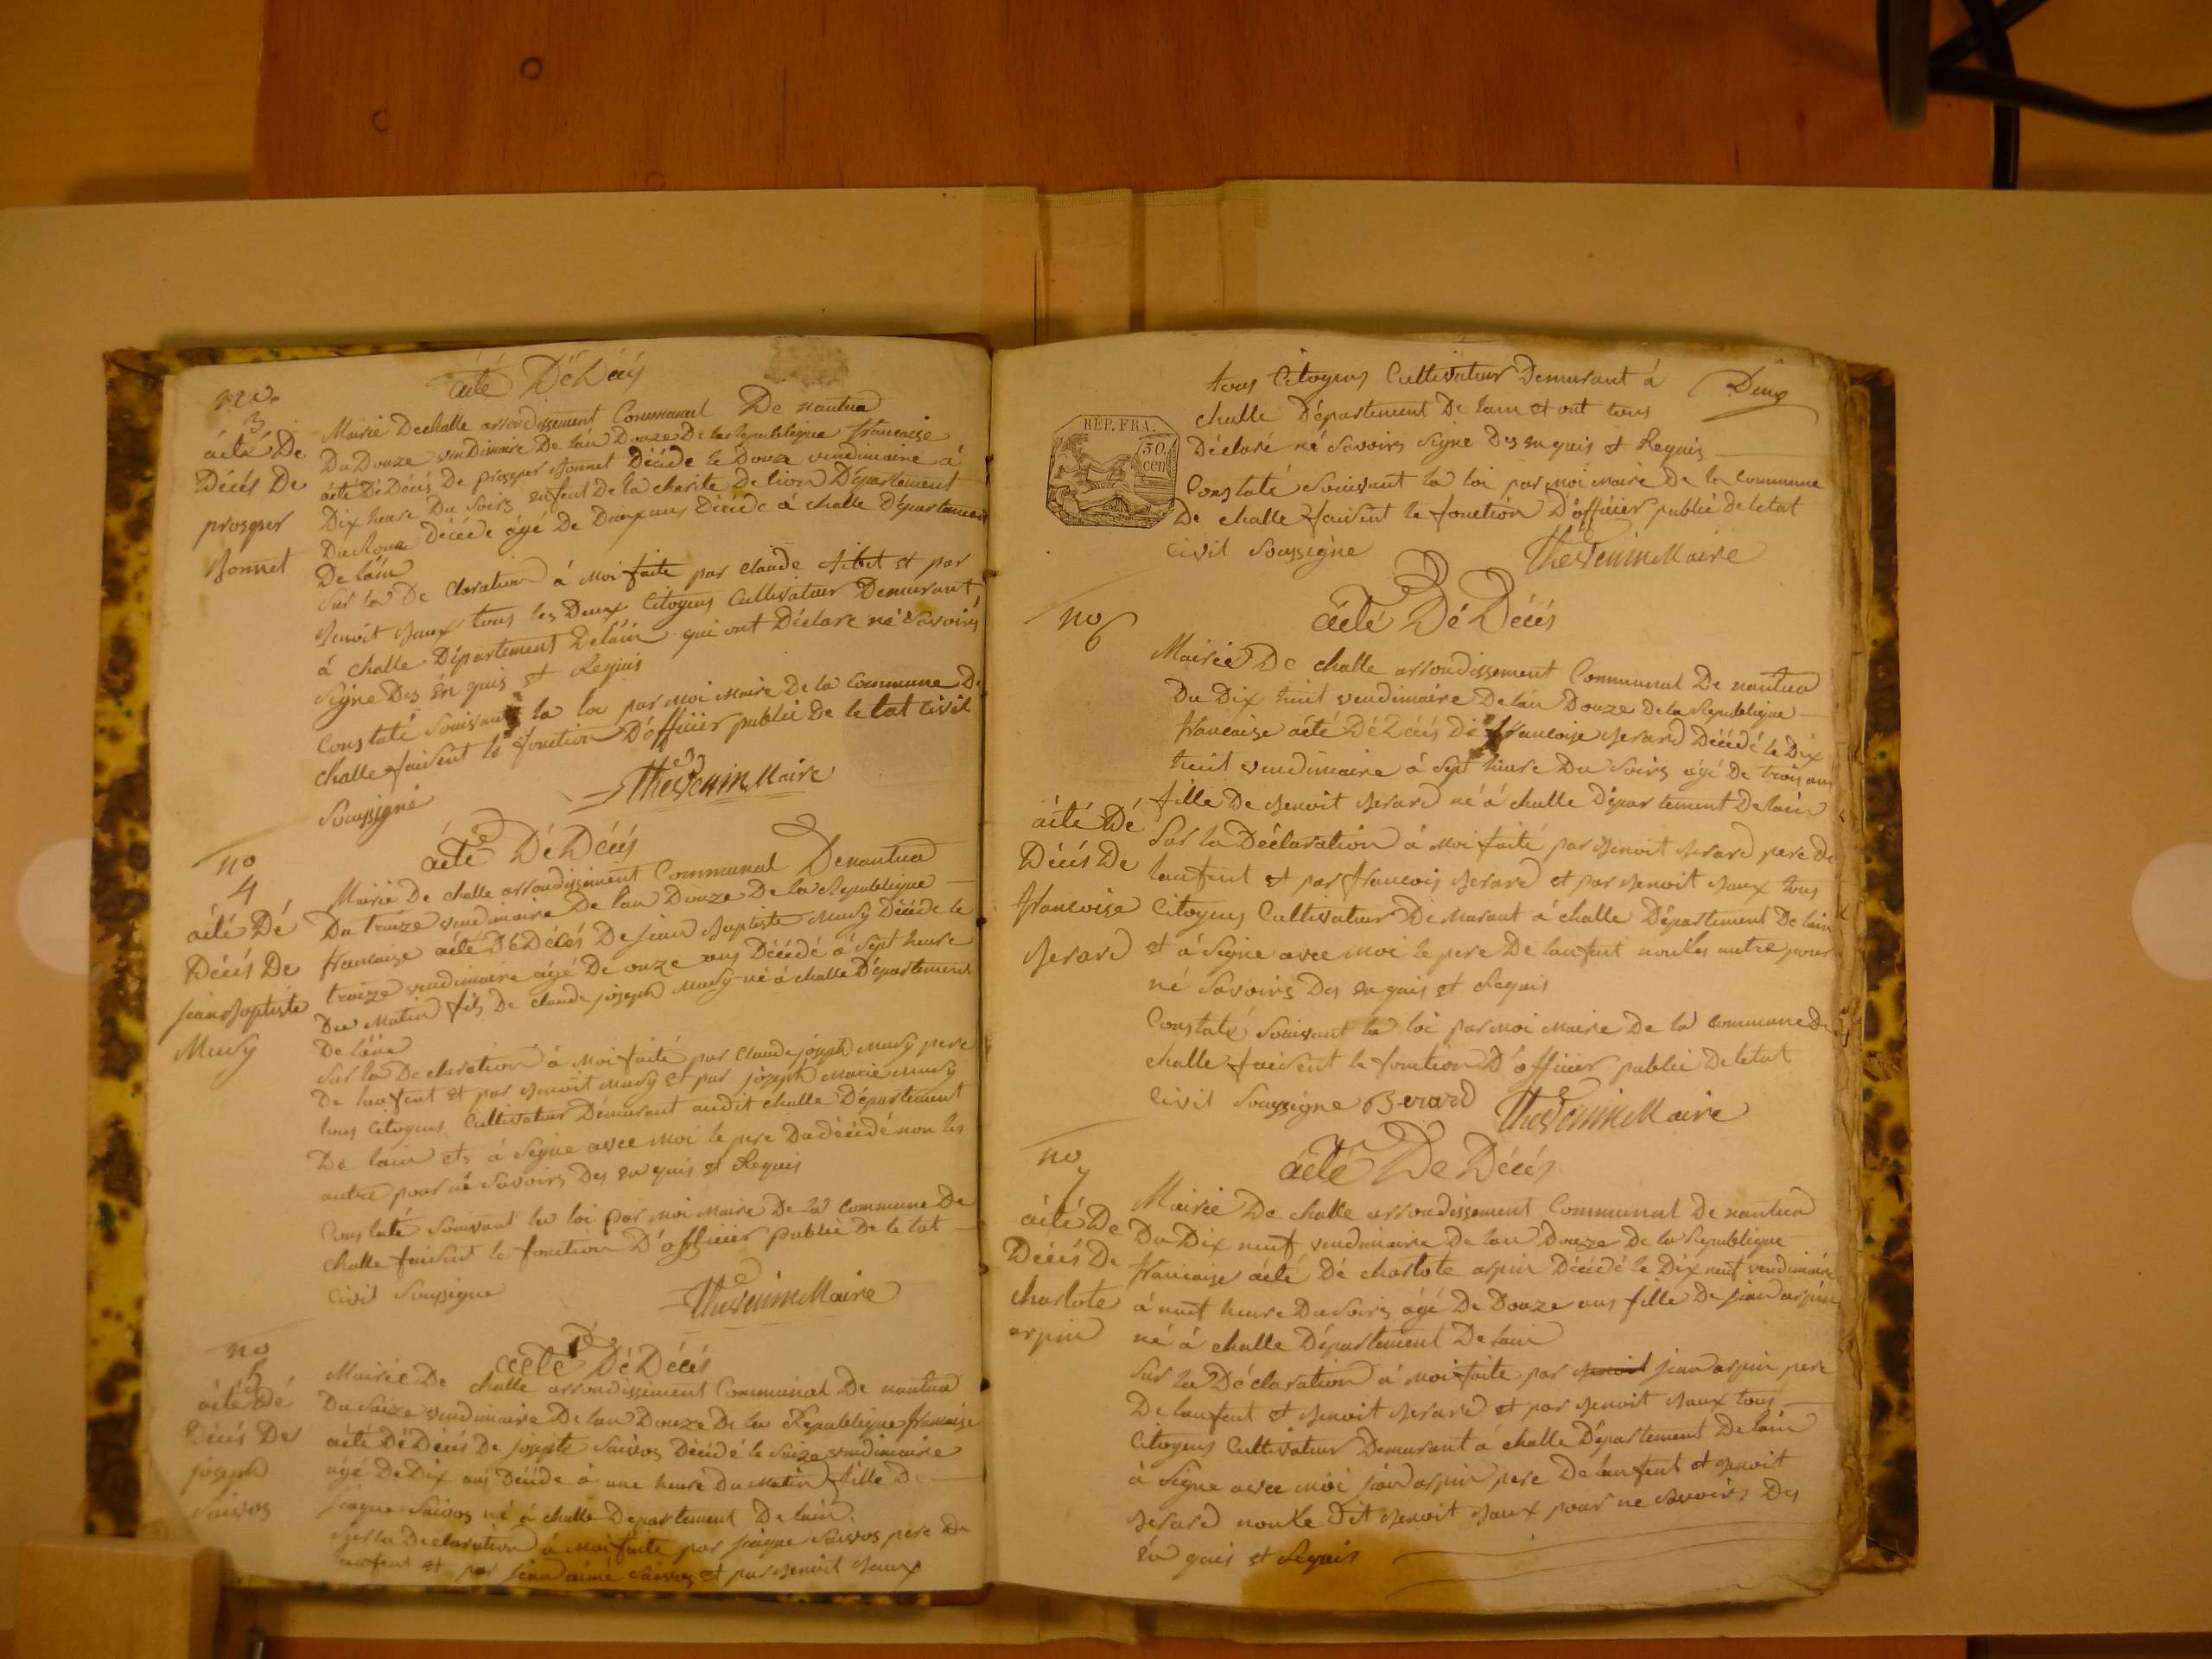 no
3
acté De
Décés De
prosper
Bonnet
acté DéDécés
Mairié Dechalle arrondissement Communal De nantua
Du Douze vendimaire De lán Douze De la Republique francaise
acté DéDécés De prosper Bonnet Décéde le Douze vendimaire á
Dix heure Du Soirs enfent De la charite De lion Département
Du Rone Décéde ágé De Deux ans Décéde á challe Départemen
De láin
Sur la De claration á moi faite par claude et par
Benoit Jaux tous les Deux Citoyens Cultivateur Demurant
á challe Département Deláin qui ont Déclare né Savoirs
Signe Des én quis et Requis
Constaté Souivant la loi par moi maire De la Commune De
challe faisent le fonction D'officier public De le tat Civil
Soussigné
Thevenin Maire
no
4
acté Dé
Décés De
jean Baptiste
Musy
acté DéDécés
Mairié De challe arrondissement Communal Denantua
Du traize vendimaire De lan Douze De la Republique
francaise acté DéDécés De jean Baptiste Musy Décéde le
traize vendimaire ágé De onze ans Décédé á Sept heure
Du Matin fils De claude joseph Musy né á challe Département
De láin
Sur la Declaration á moi faité par Claude joseph Musy pere
De lanfent et par Benoit Musy et par joseph Marie Musy
tous Citoyens Cultivateur Démurant audit challe Département
De lain et á Signe avec moi le pere Du décédé non les
autre pour né Savoirs Des enquis et Requis
Constaté Souivant la loi par moi maire De la commune De
challe faisent le fonction D'officier public De le tat
Civil Soussigne
Thevenin Maire
no
5
acté Dé
Décés De
joseph
Saivos
acte DéDécés
Mairiée De challe arrondissement Communal De nantua
Du Saize vendimaire De lan Douze De la Republique francaise
acté DéDécés De josepte Saivos Décédé le Saize vendimaire
ágé De Dix ans Décéde á une heure Du Matin fille De
jaque Saivos né á challe Departement De lain
Sur la Declaration á moi faite par jaque Saivos pere De
lanfent et par jean aimé Saivos et par Benoit Jaux
tous Citoyens Cultivateur Demurant á
Deux
challe Département De lain et ont tous
Déclaré né Savoirs Signe Des en quis et Requis
REP. FRA.
50.
cen
Constaté Souivant la loi par moi maire De la commune
De challe faisent le fonction D'officier public de letat
civil Soussigne
Thevenin Maire
no
6
acté Dé
Décés De
francoise
Berard
acté Dé Décés
Mairiée De challe arrondissement Communal De nantua
Du Dix huit vendimaire De lán Douze De la Republique
francaise acté DéDécés De francoise Berard Décédé le Dix
huit vendimaire á Sept heure Du Soirs ágé De trois ans
fille De Benoit Berard né á challe Département De lain
Sur la Déclaration á moi faité par Benoit Berard pere De
lanfent et par francois Berard et par Benoit Jaux tous
Citoyens Cultivateur De Murant á challe Département De lain
et á Signe avec moi le pere De lanfent nonles autre pour
né Savoirs Des en quis et Requis
Constaté Souivant la loi par moi maire De la Commune De
challe faisent le fonction D'officier public De letat
Civil Soussigne Berard Thevenin Maire
no
7
acté De
Décés De
charlote
arpin
acté De Décés
Mairiée De challe arrondissement Communal De nantua
Du Dix neuf vendimaire De lan Douze De la Republique
francaise acté Dé charlote arpin Décédé le Dix neuf vendimaire
á neuf heure Du Soirs ágé De Douze ans fille De jean arpin
né á challe Département De lain
Sur la Déclaration á moi faite par Benoit jean arpin pere
De lanfent et Benoit Berard et par Benoit Jaux tous
Citoyens Cultivateur Demurant á challe Département De lain
á Signe avec moi jean arpin pere De lanfent et Benoit
Berard nonle Dit Benoit Jaux pour ne Savoirs Des
én quis et Requis